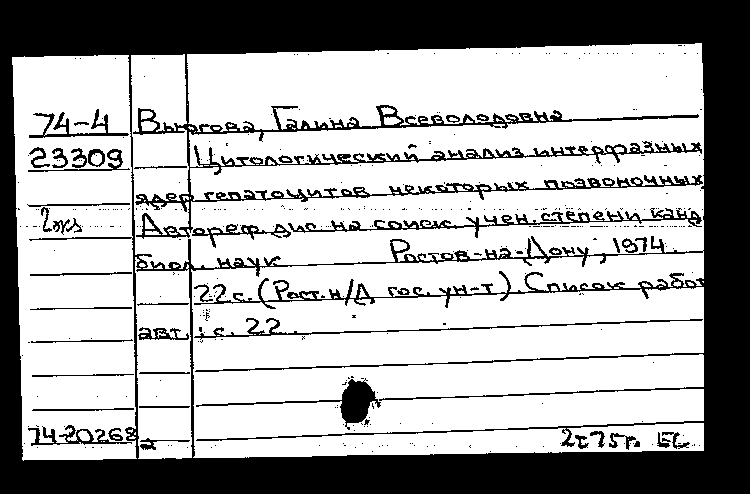 74-4 Вьюгова, Галина Всеволодовна
23309 Цитологический анализ интерфазных
ядер гепатоцитов некоторых позвоночных
2экз Автореф. дис. на соиск. учен. степени канд.
биол. наук Ростов-на-Дону, 1974.
22 с. (Рост. н/Д гос. ун-т). Список работ
авт.: с. 22.
74-20268
2